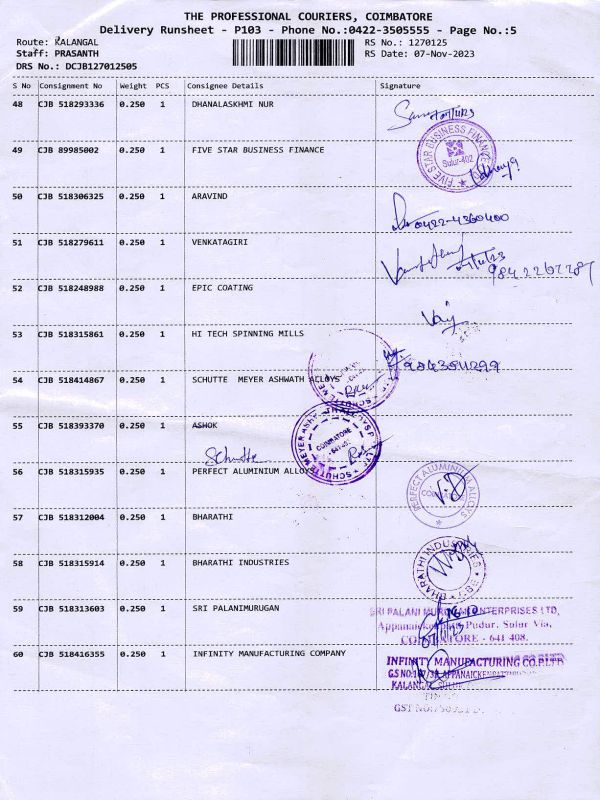 THE PROFESSIONAL COURIERS, COIMBATORE
Delivery Runsheet - P103 - Phone No.:0422-3505555 - Page No.:5
Route: KALANGAL RS No.: 1270125
Staff: PRASANTH RS Date: 07-Nov-2023
DRS No.: DCJB127012505
S No Consignment No Weight PCS Consignee Details Signature
48 CJB 518293336 0.250 1 DHANALASKHMI NUR
49 CJB 89985002 0.250 1 FIVE STAR BUSINESS FINANCE
FIVE STAR BUSINESS FINANCE
Sulur-402
50 CJB 518306325 0.250 1 ARAVIND
0422-4360400
51 CJB 518279611 0.250 1 VENKATAGIRI
52 CJB 518248988 0.250 1 EPIC COATING
53 CJB 518315861 0.250 1 HI TECH SPINNING MILLS
54 CJB 518414867 0.250 1 SCHUTTE MEYER ASHWATH ALLOYS
55 CJB 518393370 0.250 1 ASHOK
Schutte
COIMBATORE
56 CJB 518315935 0.250 1 PERFECT ALUMINIUM ALLOYS
PERFECT ALUMINIUM ALLOYS
57 CJB 518312004 0.250 1 BHARATHI
58 CJB 518315914 0.250 1 BHARATHI INDUSTRIES
BHARATHI INDUSTRIES
59 CJB 518313603 0.250 1 SRI PALANIMURUGAN
SRI PALANI ENTERPRISES LTD,
Pudur, Sulur Via,
- 641 408.
60 CJB 518416355 0.250 1 INFINITY MANUFACTURING COMPANY
INFINITY MANUFACTURING CO.P.LTD